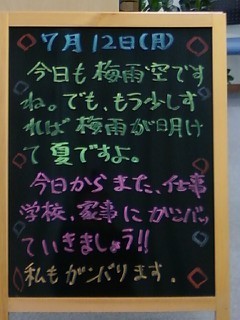 7月12日(月)
今日も梅雨空です
ね。でも、もう少しす
れば梅雨が明け
て夏ですよ。
今日からまた、仕事
学校、家事にガンバッ
ていきましょう!!
私もガンバります.